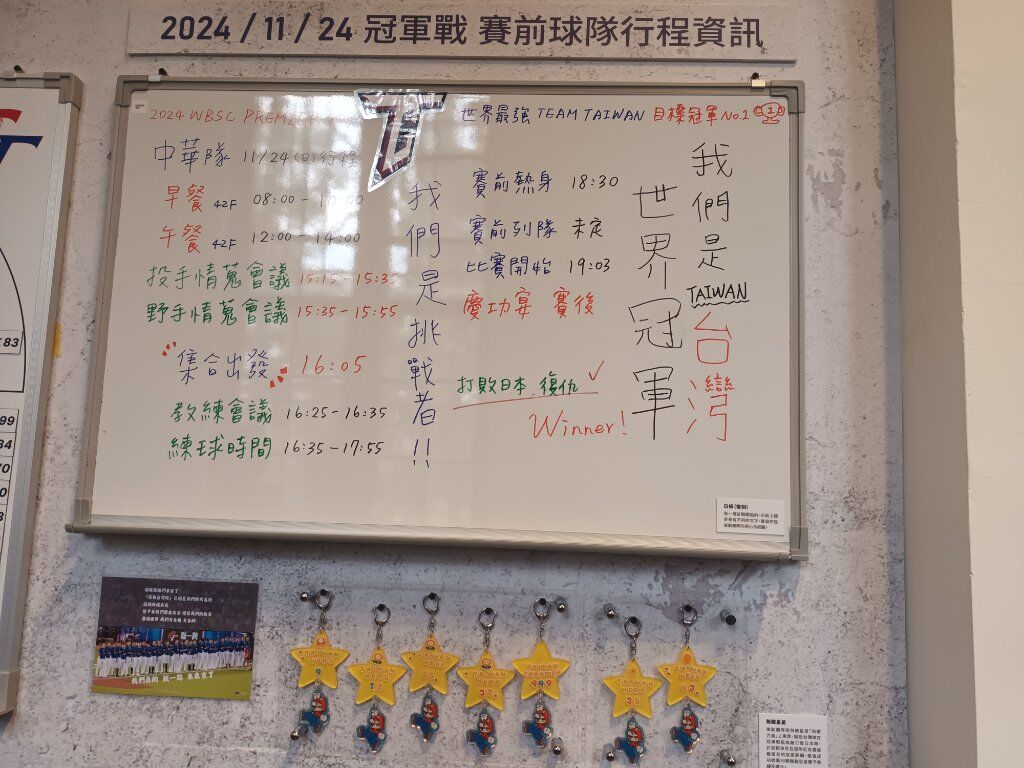 2024 / 11 / 24 冠軍戰 賽前球隊行程資訊
2024 WBSC
世界最強 TEAM TAIWAN 目標冠軍 No.1
中華隊 11/24 (日) 行程
早餐 42F 08:00 -
午餐 42F 12:00 - 14:00
投手情蒐會議 15:15 - 15:35
野手情蒐會議 15:35 - 15:55
集合出發 16:05
教練會議 16:25 - 16:35
練球時間 16:35 - 17:55
我們是挑戰者!!
賽前熱身 18:30
賽前列隊 未定
比賽開始 19:03
慶功宴 賽後
打敗日本 復仇 ✓
Winner!
我們是 TAIWAN 台灣
世界冠軍
白板 (復刻)
我們真的 就一起 來東京了
TAIWAN HERO
TAIWAN HERO
12
TAIWAN HERO
TAIWAN HERO
TAIWAN CHAMPION
999
TAIWAN HERO
TAIWAN HERO
無敵星星
83
99
84
70